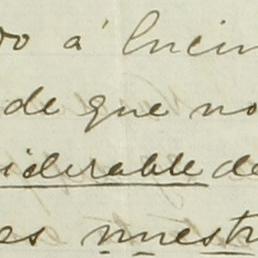 do á Encin
de que no
siderable de
es nuestr